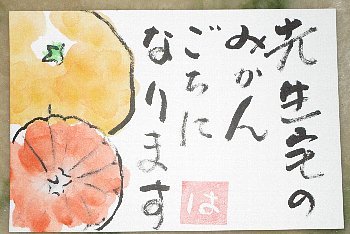 先生宅の
みかん
ごちに
なります
は